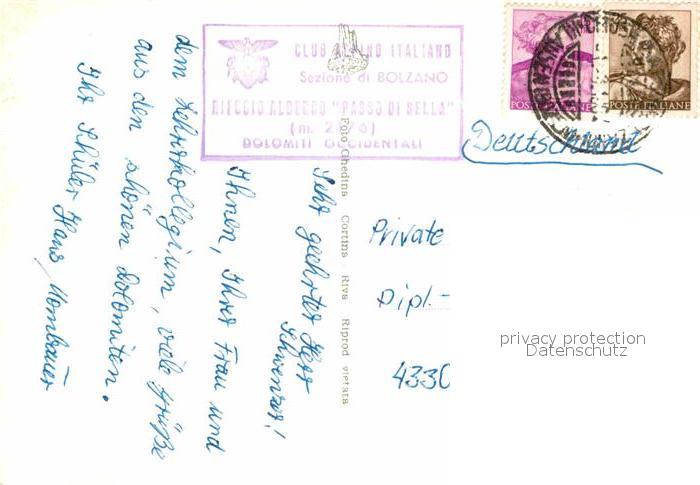 CLUB ALPINO ITALIANO
Sezione di BOLZANO
RIFUGIO ALBERGO "PASSO DI SELLA"
DOLOMITI OCCIDENTALI
POSTE ITALIANE
POSTE ITALIANE
Deutschland
Sehr geehrter Herr
Schwenzer!
Ihnen, Ihrer Frau und
dem Lehrerkollegium, viele Grüße
aus den schönen Dolomiten.
Ihr Schüler Hans Mombauer
Foto Ghedina Cortina Riva Riprod vietata
Private
Dipl.-
4330
privacy protection
Datenschutz